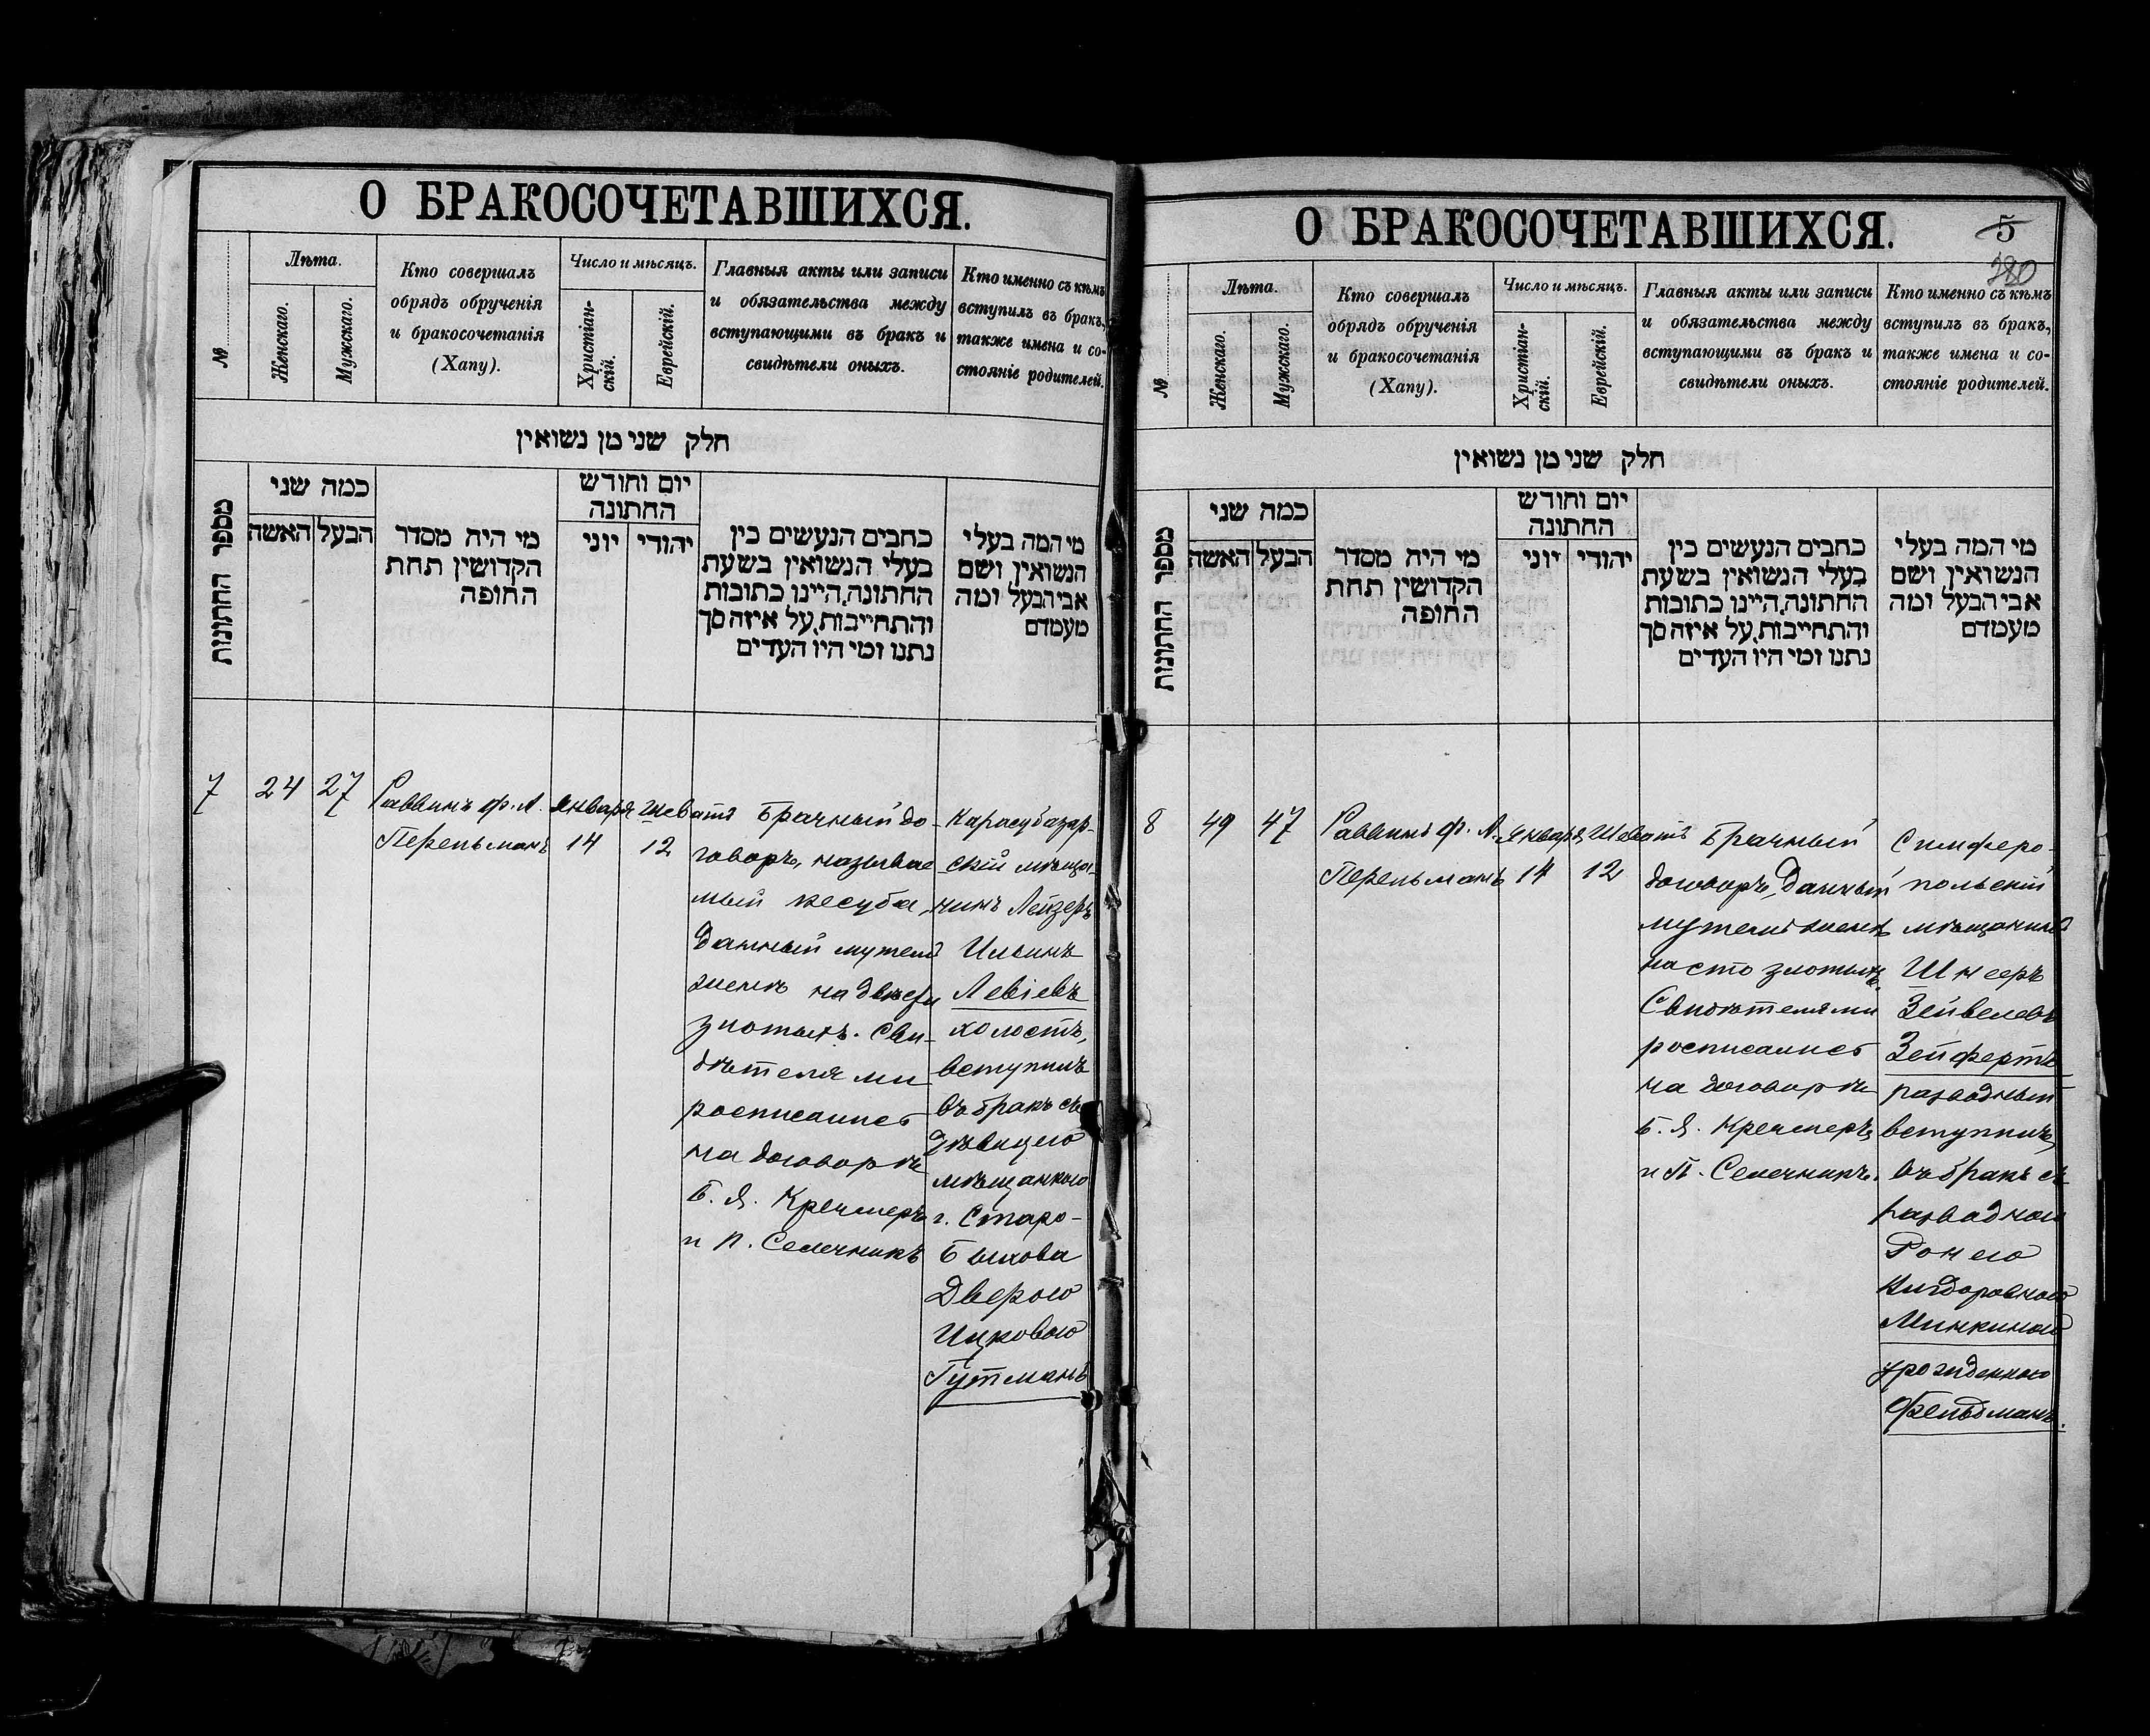 О БРАКОСОЧЕТАВШИХСЯ.
№
Лѣта.
Женскаго.
Мужскаго.
Кто совершалъ
обрядъ обрученія
и бракосочетанія
(Хапу).
Число и мѣсяцъ.
Христіан-
скій.
Еврейскій.
Главныя акты или записи
и обязательства между
вступающими въ бракъ и
свидѣтели оныхъ.
Кто именно съ кѣмъ
вступилъ въ бракъ,
также имена и со-
стояніе родителей.
חלק שני מן נשואין
מספר החתונות
כמה שני
האשה
הבעל
מי היה מסדר
הקדושין תחת
החופה
יום וחודש
החתונה
יוני
יהודי
כתבים הנעשים בין
בעלי הנשואין בשעת
החתונה, היינו כתובות
והתחייבות, על איזה סך
נתנו ומי היו העדים
מי המה בעלי
הנשואין, ושם
אבי הבעל ומה
מעמדם
7
24
27
Раввинъ Ф. Л.
Перельманъ
Января
14
Шеватъ
12
Брачный до-
говоръ, называе
мый кесуба,
данный мужемъ
женѣ на двѣсти
злотыхъ. Сви-
дѣтелями
росписались
на договорѣ
Б. Я. Кремеръ
и П. Селечникъ
Карасубазар-
скій мѣща-
нинъ Лейзеръ
Ильинъ
Левіевъ
холостъ,
вступилъ
въ бракъ съ
дѣвицею
мѣщанкою
г. Старо-
Быхова
Дверою
Ицковою
Гутманъ
О БРАКОСОЧЕТАВШИХСЯ.
5
280
№
Лѣта.
Женскаго.
Мужскаго.
Кто совершалъ
обрядъ обрученія
и бракосочетанія
(Хапу).
Число и мѣсяцъ.
Христіан-
скій.
Еврейскій.
Главныя акты или записи
и обязательства между
вступающими въ бракъ и
свидѣтели оныхъ.
Кто именно съ кѣмъ
вступилъ въ бракъ,
также имена и со-
стояніе родителей.
חלק שני מן נשואין
מספר החתונות
כמה שני
האשה
הבעל
מי היה מסדר
הקדושין תחת
החופה
יום וחודש
החתונה
יוני
יהודי
כתבים הנעשים בין
בעלי הנשואין בשעת
החתונה, היינו כתובות
והתחייבות, על איזה סך
נתנו ומי היו העדים
מי המה בעלי
הנשואין, ושם
אבי הבעל ומה
מעמדם
8
49
47
Раввинъ Ф. Л.
Перельманъ
Января
14
Шеватъ
12
Брачный
договоръ, данный
мужемъ женѣ
на сто злотыхъ.
Свидѣтелями
росписались
на договорѣ
Б. Я. Кремеръ
и П. Селечникъ.
Симферо-
польскій
мѣщанинъ
Шнееръ
Зейвелевъ
Зейфертъ
разводный
вступилъ
въ бракъ съ
разводною
Ронею
Минкиною
урожденною
Фельдманъ.